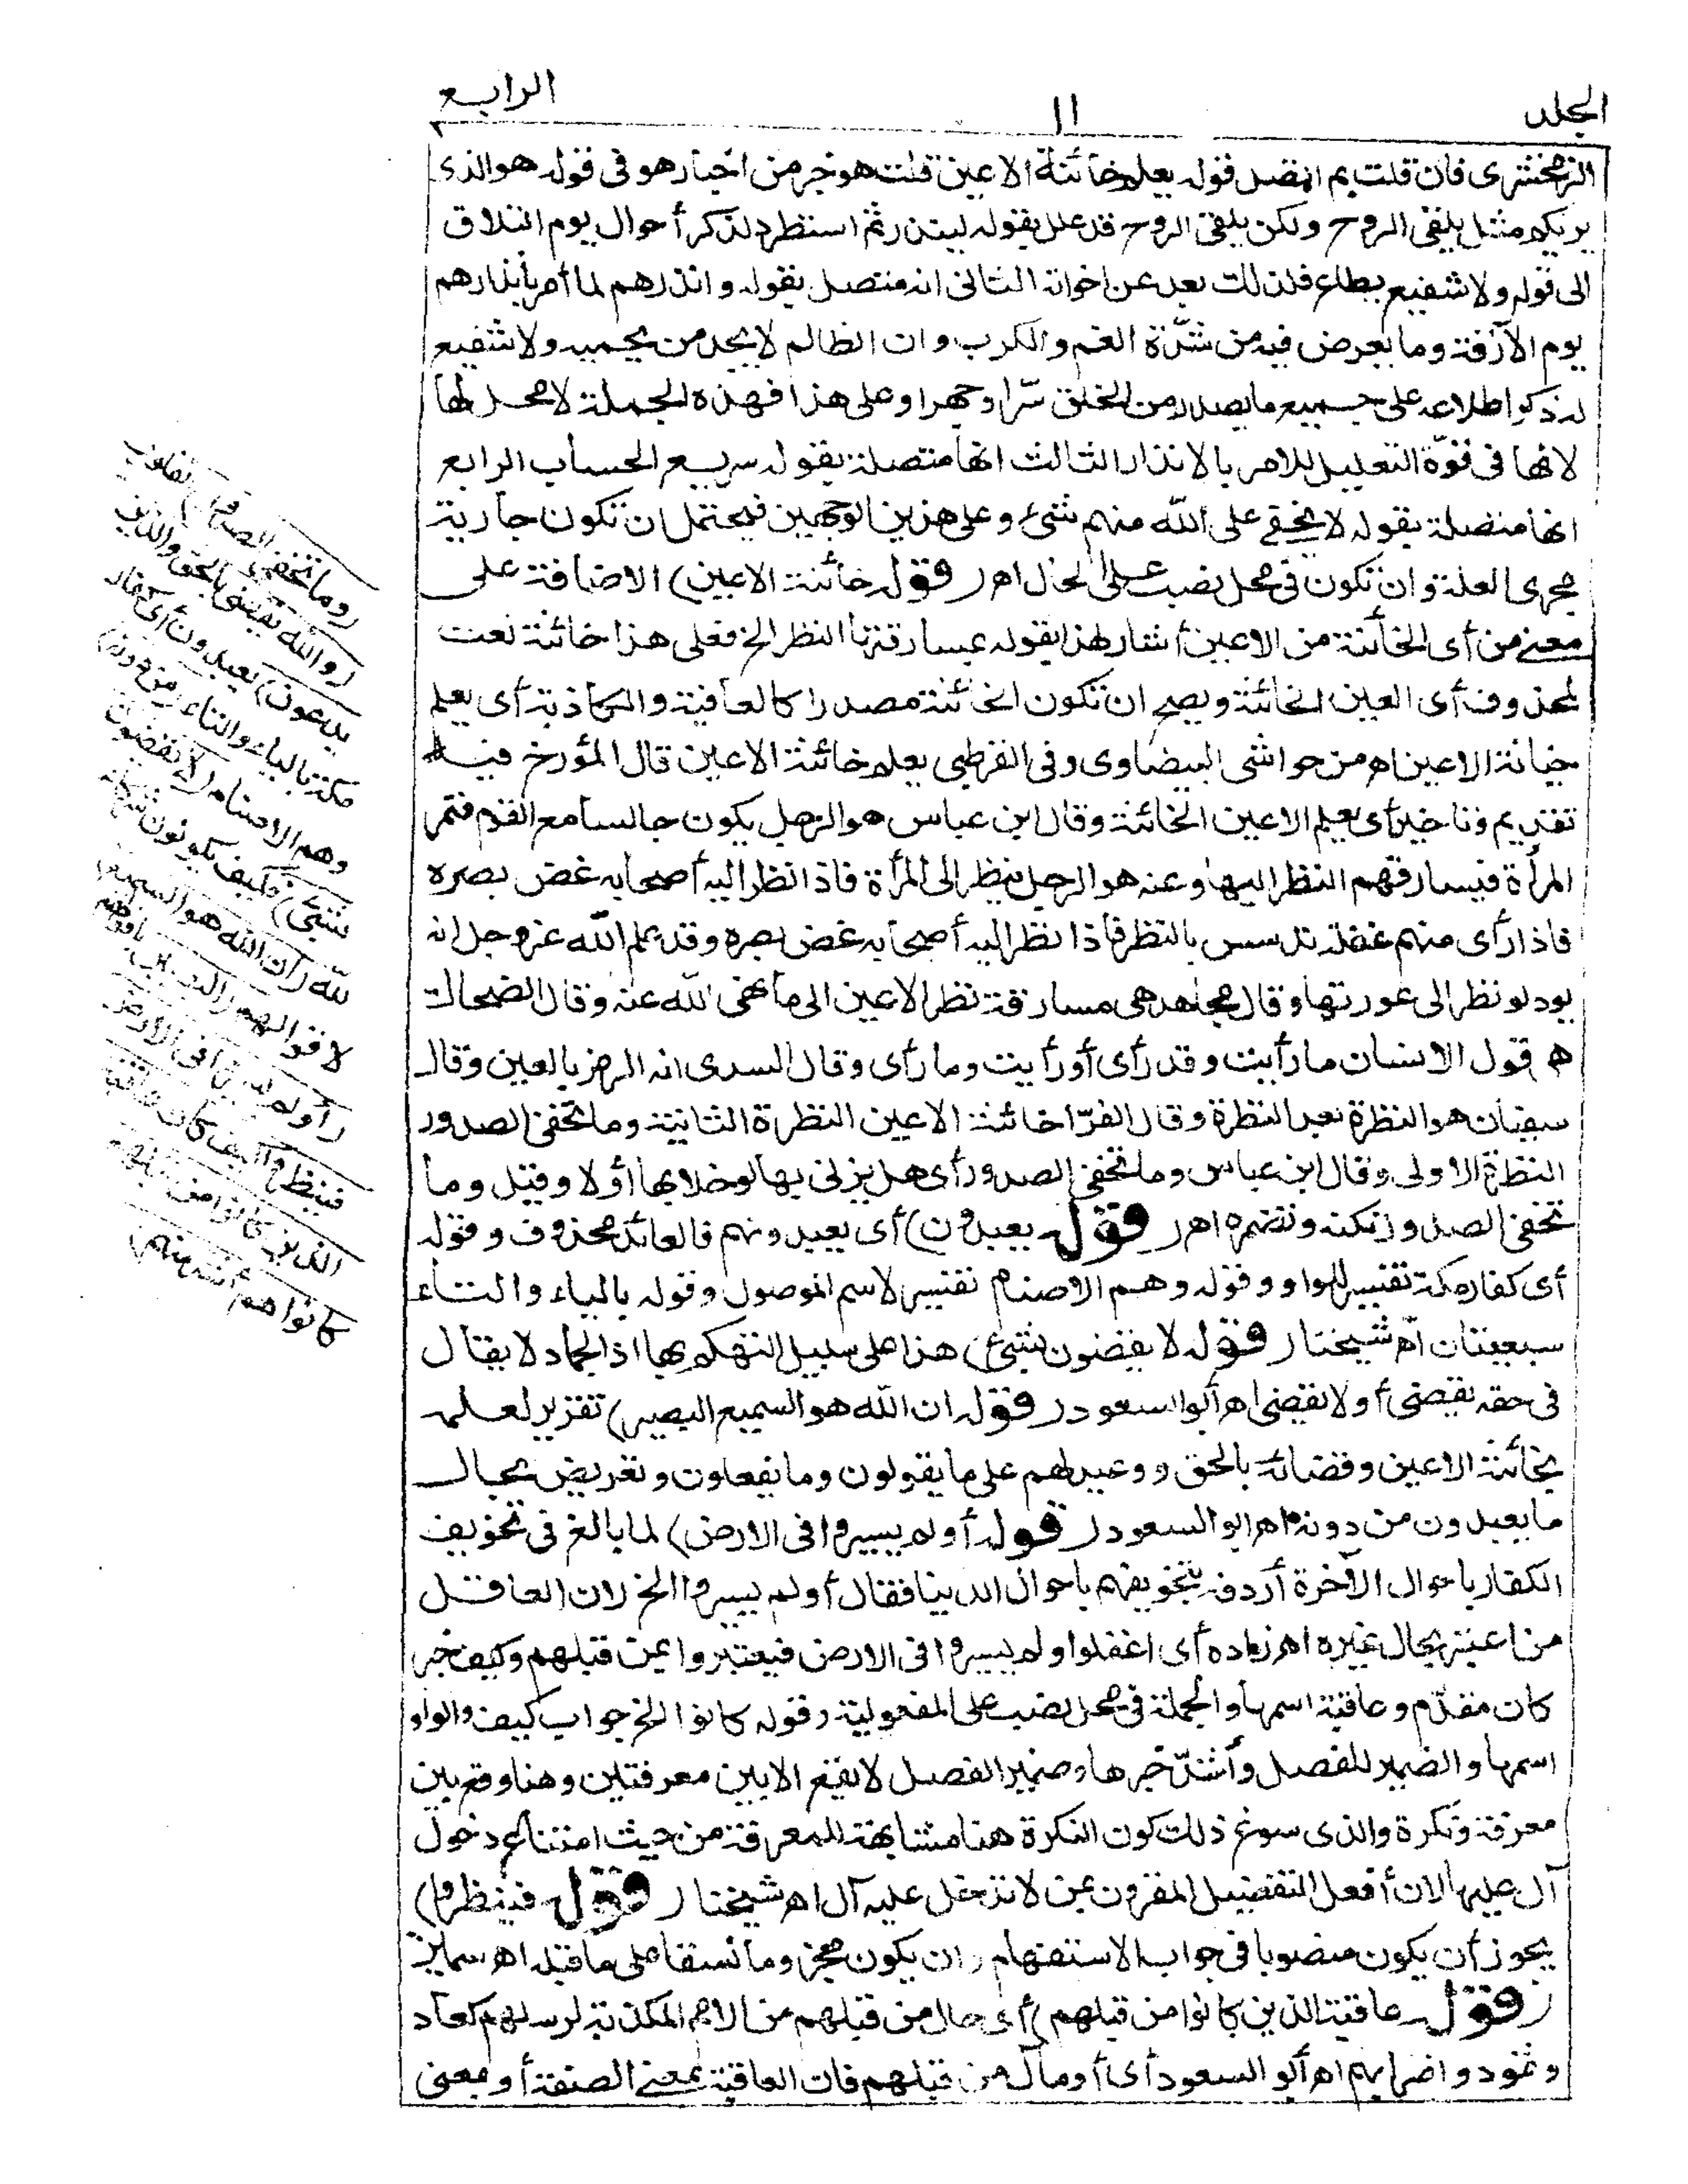 المجلد
١١
الرابع
الزمخشرى فان قلت بم اتصل قوله يعلم خائنة الاعين قلت هو خبر من اخبار هو فى قوله هو الذى
يريكم مثل يلقى الروح ولكن يلقى الروح قد علل بقوله لينذر ثم استطرد لذكر أحوال يوم التلاق
الى قوله ولا شفيع يطاع فلذلك بعد عن اخواته الثانى انه متصل بقوله وانذرهم لما أمر بانذارهم
يوم الآزفة وما يعرض فيه من شدّة الغم والكرب وان الظالم لا يجد من يحميه ولا شفيع
له ذكر اطلاعه على جميع ما يصدر من الخلق سرّا وجهرا وعلى هذا فهذه الجملة لا محل لها
لانها فى قوّة التعليل للامر بالانذار الثالث انها متصلة بقوله سريع الحساب الرابع
انها متصلة بقوله لا يخفى على الله منهم شئ وعلى هذين الوجهين فيحتمل ان تكون جارية
مجرى العلة وان تكون فى محل نصب على الحال اهـ (قوله خائنة الاعين) الاضافة على
معنى من أى الخائنة من الاعين أشار لهذا بقوله بمسارقتها النظر الخ فعلى هذا خائنة نعت
لمحذوف أى العين الخائنة ويصح ان تكون الخائنة مصدرا كالعافية والكاذبة أى يعلم
خيانة الاعين اهـ من حواشى البيضاوى وفى القرطبى يعلم خائنة الاعين قال المؤرخ فيه
تقديم وتاخير أى يعلم الاعين الخائنة وقال ابن عباس هو الرجل يكون جالسا مع القوم فتمر
المرأة فيسارقهم النظر اليها وعنه هو الرجل ينظر الى المرأة فاذا نظر اليه أصحابه غض بصره
فاذا رأى منهم غفلة تدسس بالنظر فاذا نظر اليه أصحابه غض بصره وقد علم الله عز وجل انه
يود لو نظر الى عورتها وقال مجاهد هى مسارقة نظر الاعين الى ما نهى الله عنه وقال الضحاك
هو قول الانسان ما رأيت وقد رأى أو رأيت وما رأى وقال السدى انه الرمز بالعين وقال
سفيان هو النظرة بعد النظرة وقال الفرّا خائنة الاعين النظرة الثانية وما تخفى الصدور
النظرة الاولى وقال ابن عباس وما تخفى الصدور أى هل يزنى بها لو خلا بها أو لا وقيل وما
تخفى الصدور تكنه وتضمره اهـ (قوله يعبدون) أى يعبدونهم فالعائد محذوف وقوله
أى كفار مكة تفسير للواو وقوله وهم الاصنام تفسير لاسم الموصول وقوله بالياء والتاء
سبعيتان اهـ شيخنا (قوله لا يقضون بشئ) هذا على سبيل التهكم بها اذ الجماد لا يقال
فى حقه يقضى أو لا يقضى اهـ أبو السعود (قوله ان الله هو السميع البصير) تقرير لعلمه
بخائنة الاعين وقضائه بالحق ووعيد لهم على ما يقولون وما يفعلون وتعريض بحال
ما يعبدون من دونه اهـ ابو السعود (قوله أولم يسيروا فى الارض) لما بالغ فى تخويف
الكفار باحوال الآخرة أردفه بتخويفهم باحوال الدنيا فقال أولم يسيروا الخ لان العاقل
من اعتبر بحال غيره اهـ زاده أى اغفلوا ولم يسيروا فى الارض فيعتبروا بمن قبلهم وكيف خبر
كان مقدّم وعاقبة اسمها والجملة فى محل نصب على المفعولية وقوله كانوا الخ جواب كيف والواو
اسمها والضمير للفصل وأشدّ خبرها وضمير الفصل لا يقع الا بين معرفتين وهنا وقع بين
معرفة ونكرة والذى سوغ ذلك كون النكرة هنا مشابهة للمعرفة من حيث امتناع دخول
آل عليها لان أفعل التفضيل المقرون بمن لا تدخل عليه آل اهـ شيخنا (قوله فينظروا)
يجوز أن يكون منصوبا فى جواب الاستفهام وان يكون مجزوما نسقا على ما قبله اهـ سمين
(قوله عاقبة الذين كانوا من قبلهم) أى حال من قبلهم من الامم المكذبة لرسلهم كعاد
وثمود واضرابهم اهـ أبو السعود أى أو مآل من قبلهم فان العاقبة بمعنى الصفة أو بمعنى
(وما تخفى الصدور) القلوب
(والله يقضى بالحق والذين
يدعون) يعبدون أى كفار
مكة بالياء والتاء (من دونه)
وهم الاصنام (لا يقضون
بشئ) فكيف يكونون شركاء
لله (ان الله هو السميع)
لاقوالهم (البصير) بافعالهم
(أولم يسيروا فى الارض
فينظروا كيف كان عاقبة
الذين كانوا من قبلهم
كانوا هم أشد منهم)